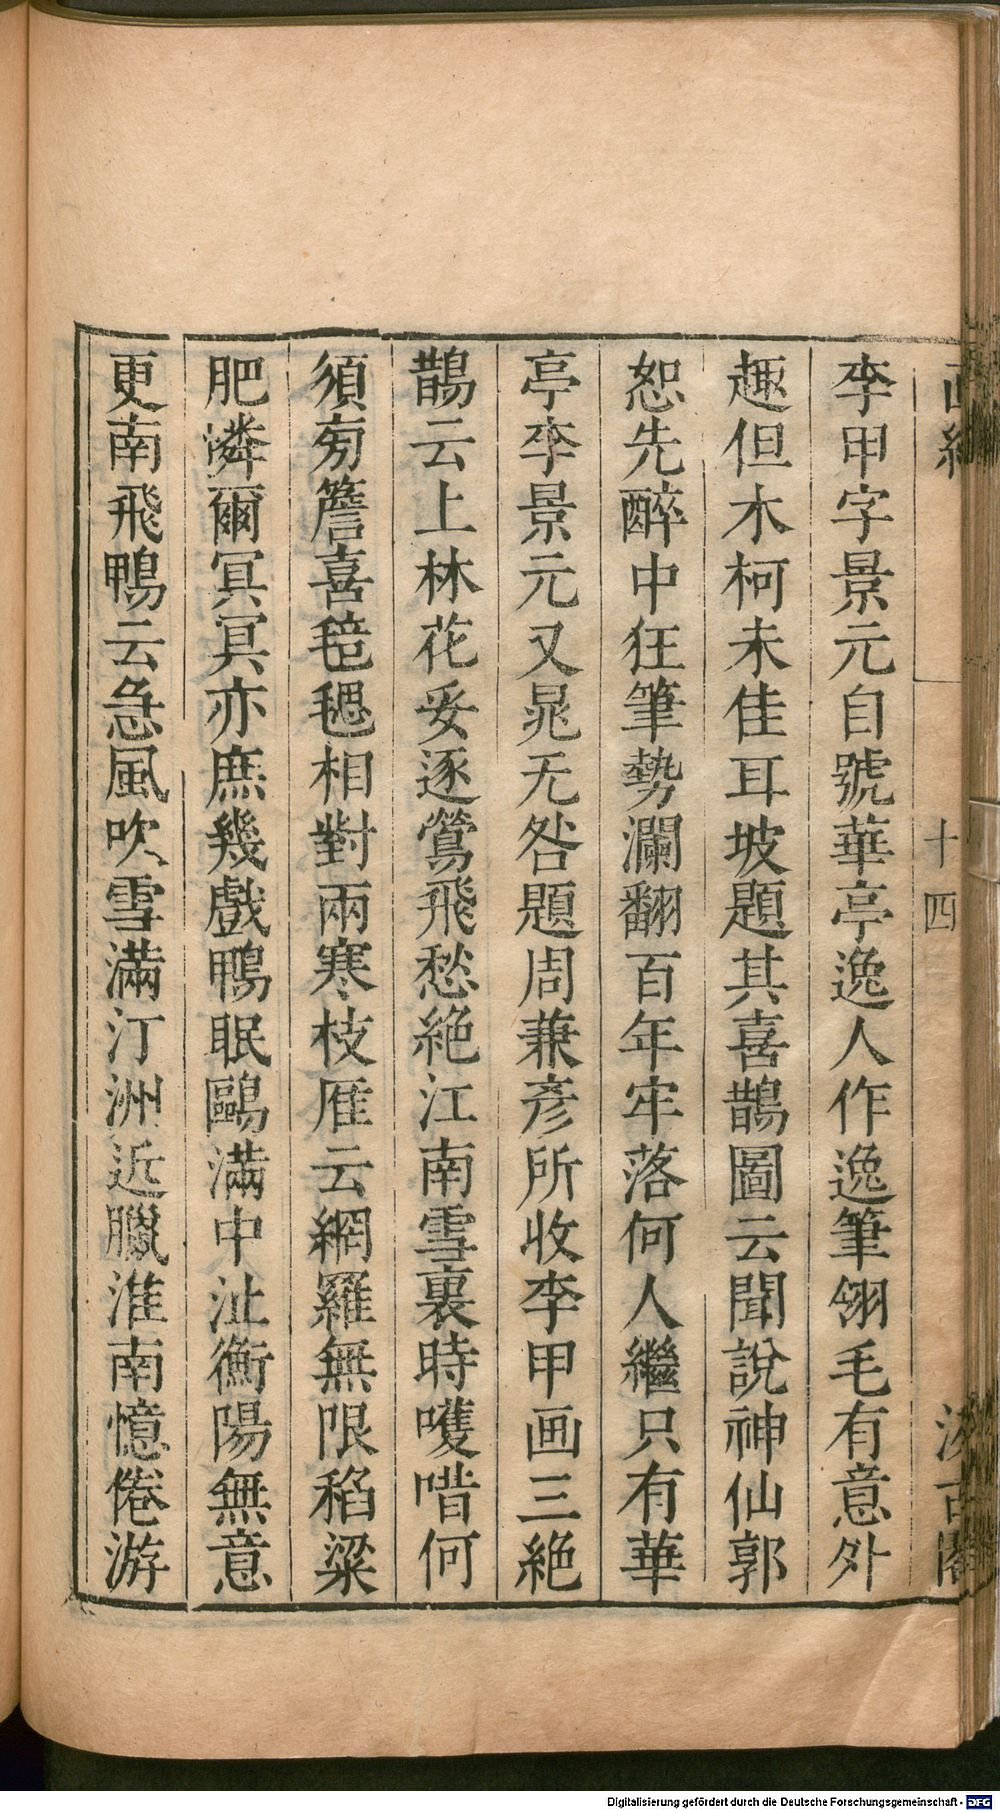 李甲字景元自號華亭逸人作逸筆翎毛有意外
趣但木柯未佳耳坡題其喜鵲圖云聞說神仙郭
恕先醉中狂筆勢瀾翻百年牢落何人繼只有華
亭李景元又晁无咎題周兼彥所收李甲画三絕
鵲云上林花妥逐鶯飛愁絕江南雪裏時嚄唶何
須匇簷喜毰毸相對兩寒枝雁云網羅無限稻粱
肥憐爾冥冥亦庶幾戲鴨眠鷗滿中沚衡陽無意
更南飛鴨云急風吹雪滿汀洲近臘淮南憶倦游
画繼
十四
汲古閣
Digitalisierung gefördert durch die Deutsche Forschungsgemeinschaft - DFG